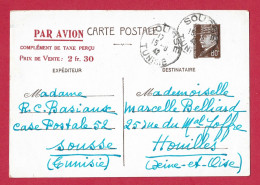 CARTE POSTALE
PAR AVION
COMPLÉMENT DE TAXE PERÇU
PRIX DE VENTE : 2 fr. 30
EXPÉDITEUR
DESTINATAIRE
SOUSSE
TUNISIE
80c
Madame
R.C. Basiaux
Case Postale 52
Sousse
(Tunisie)
Mademoiselle
Marcelle Belliard
25 rue du Mal Joffre
Houilles
(Seine-et-Oise)